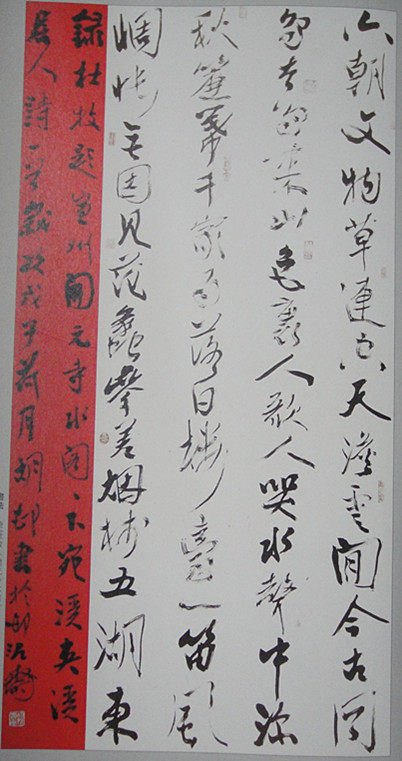 六朝文物草連空天澹雲閒今古同
鳥去鳥來山色裏人歌人哭水聲中深
秋簾幕千家雨落日樓臺一笛風
惆悵无因見范蠡參差烟樹五湖東
録杜牧題宣州開元寺水閣〻下宛溪夾溪
居人詩一首歲次戊子荷月邨書於